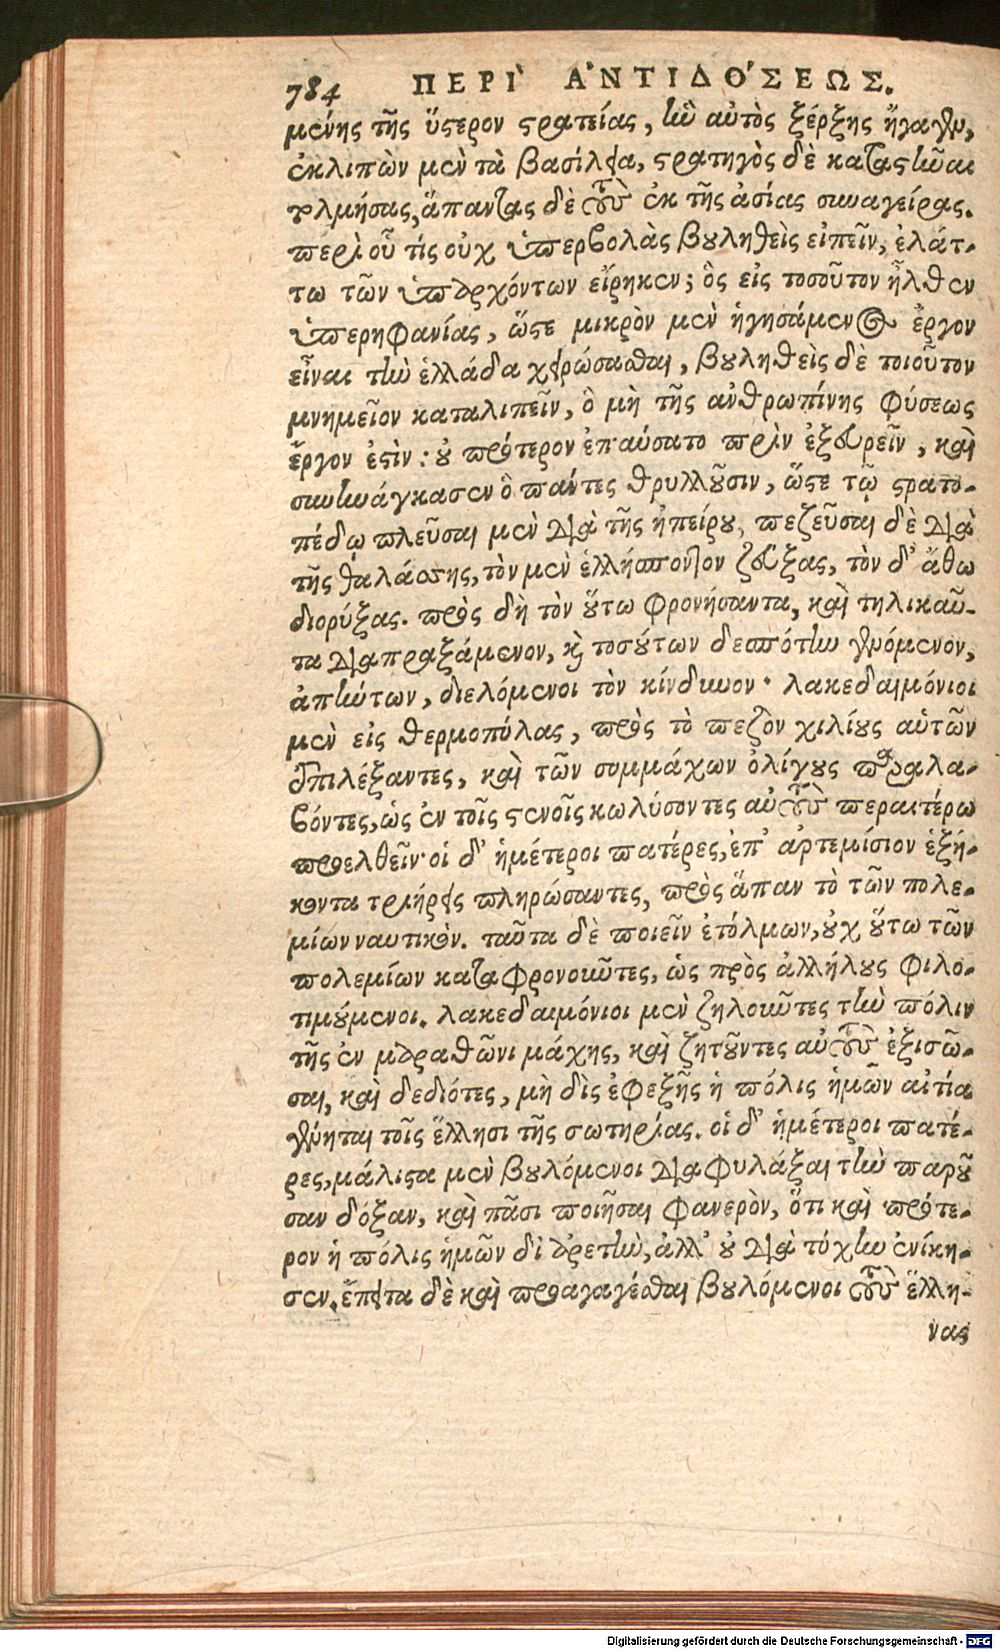 784 ΠΕΡῚ ἈΝΤΙΔΌΣΕΩΣ.
μένης τῆς ὕστερον στρατείας, ἣν αὐτὸς ξέρξης ἤγαγεν,
ἐκλιπὼν μὲν τὰ βασίλεια, στρατηγὸς δὲ καταστῆναι
τολμήσας, ἅπαντας δὲ τοὺς ἐκ τῆς ἀσίας συναγείρας.
περὶ οὗ τίς οὐχ ὑπερβολὰς βουληθεὶς εἰπεῖν, ἐλάτ-
τω τῶν ὑπαρχόντων εἴρηκεν; ὃς εἰς τοσοῦτον ἦλθεν
ὑπερηφανίας, ὥστε μικρὸν μὲν ἡγησάμενος ἔργον
εἶναι τὴν ἑλλάδα χειρώσασθαι, βουληθεὶς δὲ τοιοῦτον
μνημεῖον καταλιπεῖν, ὃ μὴ τῆς ἀνθρωπίνης φύσεως
ἔργον ἐστὶν: οὐ πρότερον ἐπαύσατο πρὶν ἐξευρεῖν, καὶ
συνηνάγκασεν ὃ πάντες θρυλλοῦσιν, ὥστε τῷ στρατο-
πέδῳ πλεῦσαι μὲν διὰ τῆς ἠπείρου, πεζεῦσαι δὲ διὰ
τῆς θαλάσσης, τὸν μὲν ἑλλήσποντον ζεύξας, τὸν δ' ἄθω
διορύξας. πρὸς δὴ τὸν οὕτω φρονήσαντα, καὶ τηλικαῦ-
τα διαπραξάμενον, καὶ τοσούτων δεσπότην γενόμενον,
ἀπήντων, διελόμενοι τὸν κίνδυνον· λακεδαιμόνιοι
μὲν εἰς θερμοπύλας, πρὸς τὸ πεζὸν χιλίους αὑτῶν
ἐπιλέξαντες, καὶ τῶν συμμάχων ὀλίγους παραλα-
βόντες, ὡς ἐν τοῖς στενοῖς κωλύσοντες αὐτοὺς περαιτέρω
προελθεῖν· οἱ δ' ἡμέτεροι πατέρες, ἐπ' ἀρτεμίσιον ἑξή-
κοντα τριήρεις πληρώσαντες, πρὸς ἅπαν τὸ τῶν πολε-
μίων ναυτικὸν. ταῦτα δὲ ποιεῖν ἐτόλμων, οὐχ οὕτω τῶν
πολεμίων καταφρονοῦντες, ὡς πρὸς ἀλλήλους φιλο-
τιμούμενοι. λακεδαιμόνιοι μὲν ζηλοῦντες τὴν πόλιν
τῆς ἐν μαραθῶνι μάχης, καὶ ζητοῦντες αὑτοὺς ἐξισῶ-
σαι, καὶ δεδιότες, μὴ δὶς ἐφεξῆς ἡ πόλις ἡμῶν αἰτία
γένηται τοῖς ἕλλησι τῆς σωτηρίας. οἱ δ' ἡμέτεροι πατέ-
ρες, μάλιστα μὲν βουλόμενοι διαφυλάξαι τὴν παροῦ
σαν δόξαν, καὶ πᾶσι ποιῆσαι φανερὸν, ὅτι καὶ πρότε-
ρον ἡ πόλις ἡμῶν δι ἀρετὴν, ἀλλ' οὐ διὰ τύχην ἐνίκη-
σεν, ἔπειτα δὲ καὶ προαγαγέσθαι βουλόμενοι τοὺς ἕλλη-
νας
Digitalisierung gefördert durch die Deutsche Forschungsgemeinschaft - DFG